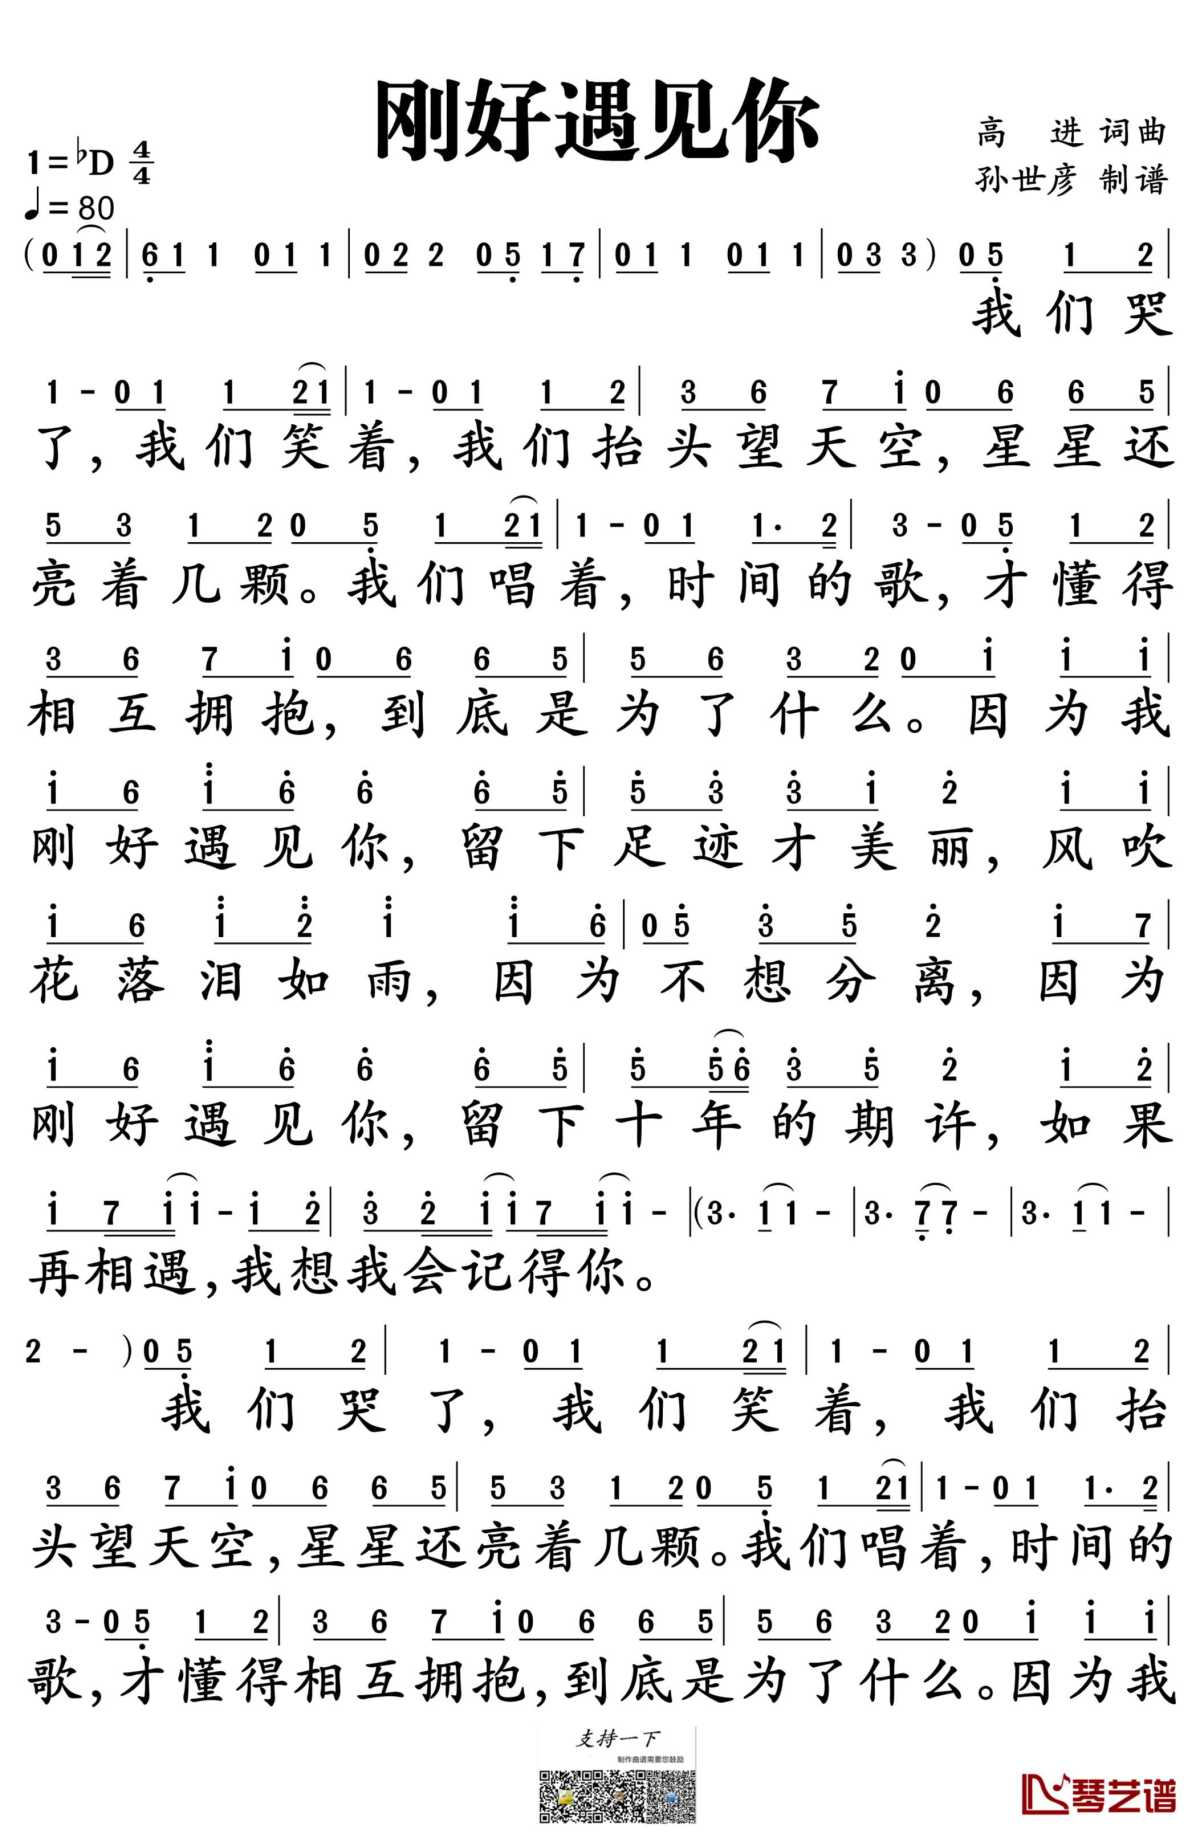 刚好遇见你
高 进 词曲
孙世彦 制谱
1=♭D 4/4
♩=80
(0 1 2 | 6 1 1 0 1 1 | 0 2 2 0 5 1 7 | 0 1 1 0 1 1 | 0 3 3) 0 5 1 2 |
我们哭
1 - 0 1 1 2 1 | 1 - 0 1 1 2 | 3 6 7 i 0 6 6 5 |
了，我们笑着，我们抬头望天空，星星还
5 3 1 2 0 5 1 2 1 | 1 - 0 1 1· 2 | 3 - 0 5 1 2 |
亮着几颗。我们唱着，时间的歌，才懂得
3 6 7 i 0 6 6 5 | 5 6 3 2 0 i i i |
相互拥抱，到底是为了什么。因为我
i 6 i 6 6 6 5 | 5 3 3 1 2 i i |
刚好遇见你，留下足迹才美丽，风吹
i 6 i 2 i i 6 | 0 5 3 5 2 i 7 |
花落泪如雨，因为不想分离，因为
i 6 i 6 6 6 5 | 5 5 6 3 5 2 i 2 |
刚好遇见你，留下十年的期许，如果
i 7 i i - i 2 | 3 2 i i 7 i i - | (3· 1 1 - | 3· 7 7 - | 3· 1 1 - |
再相遇，我想我会记得你。
2 - ) 0 5 1 2 | 1 - 0 1 1 2 1 | 1 - 0 1 1 2 |
我们哭了，我们笑着，我们抬
3 6 7 i 0 6 6 5 | 5 3 1 2 0 5 1 2 1 | 1 - 0 1 1· 2 |
头望天空，星星还亮着几颗。我们唱着，时间的
3 - 0 5 1 2 | 3 6 7 i 0 6 6 5 | 5 6 3 2 0 i i i |
歌，才懂得相互拥抱，到底是为了什么。因为我
支持一下
制作曲谱需要您鼓励
琴艺谱